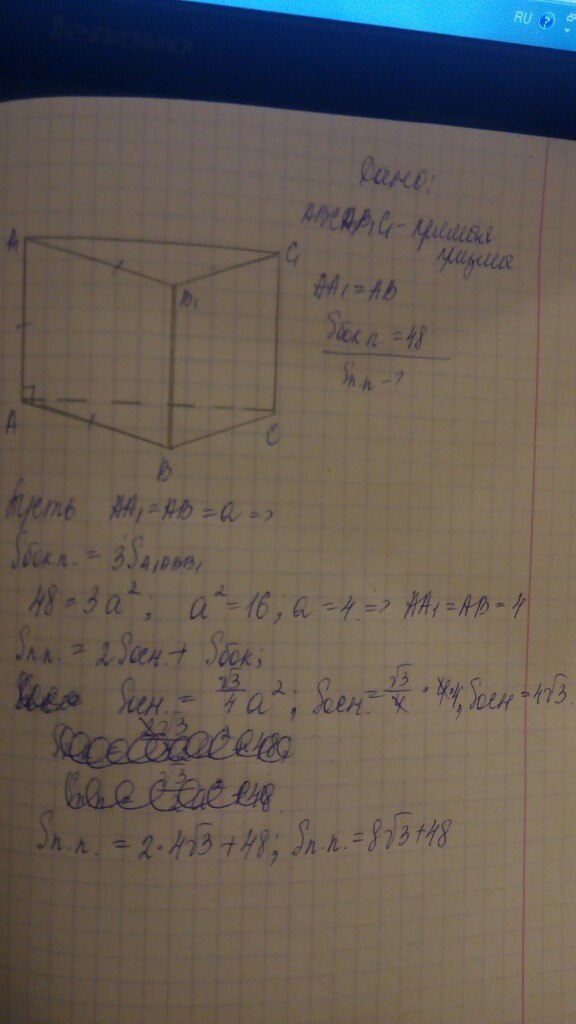 RU
Дано:
ABCA₁B₁C₁ - прямая
призма
AA₁ = AB
Sбок.п. = 48
Sп.п - ?
A₁
C₁
B₁
A
C
B
Пусть AA₁ = AB = a =>
Sбок.п. = 3S
48 = 3a²; a² = 16; a = 4 => AA₁ = AB = 4
Sп.п. = 2Sосн. + Sбок;
Sосн. = √3/4 a²; Sосн. = √3/4 · 4·4; Sосн = 4√3.
Sп.п. = 2·4√3 + 48; Sп.п. = 8√3 + 48